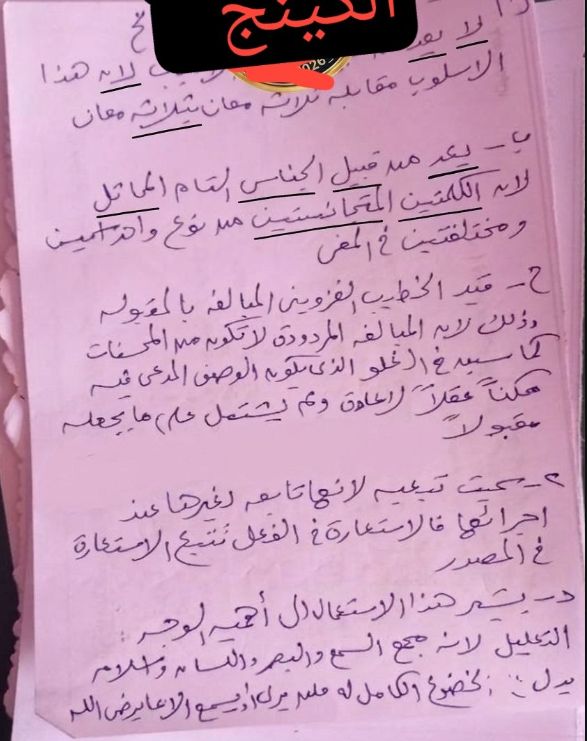 الكينج
لا يعد لانه هذا
الاسلوب مقابلة ثلاثة معان بثلاثة معان
2026
ب - يعد من قبيل الجناس التام المماثل
لانه الكلمتين المتجانستين من نوع واحد اسمين
ومختلفتين في المعنى
ج - قيد الخطيب القزويني المبالغه بالمقبوله
وذلك لانه المبالغه المردودة لا تكون من المحسنات
كما سبق في الغلو الذي يكون الوصف المدعى فيه
ممكناً عقلاً لا عادة ولم يشتمل على ما يجعله
مقبولاً
سميت تبعيه لانها تابعه لغيرها عند
اجرائها فالاستعارة في الفعل تتبع الاستعارة
في المصدر
د - يشير هذا الاستعمال الى أهمية الوجه
التعليل لانه مجمع السمع والبصر واللسان
يدل الخضوع الكامل له فلا يرى او يسمع الا ما يرضى الله